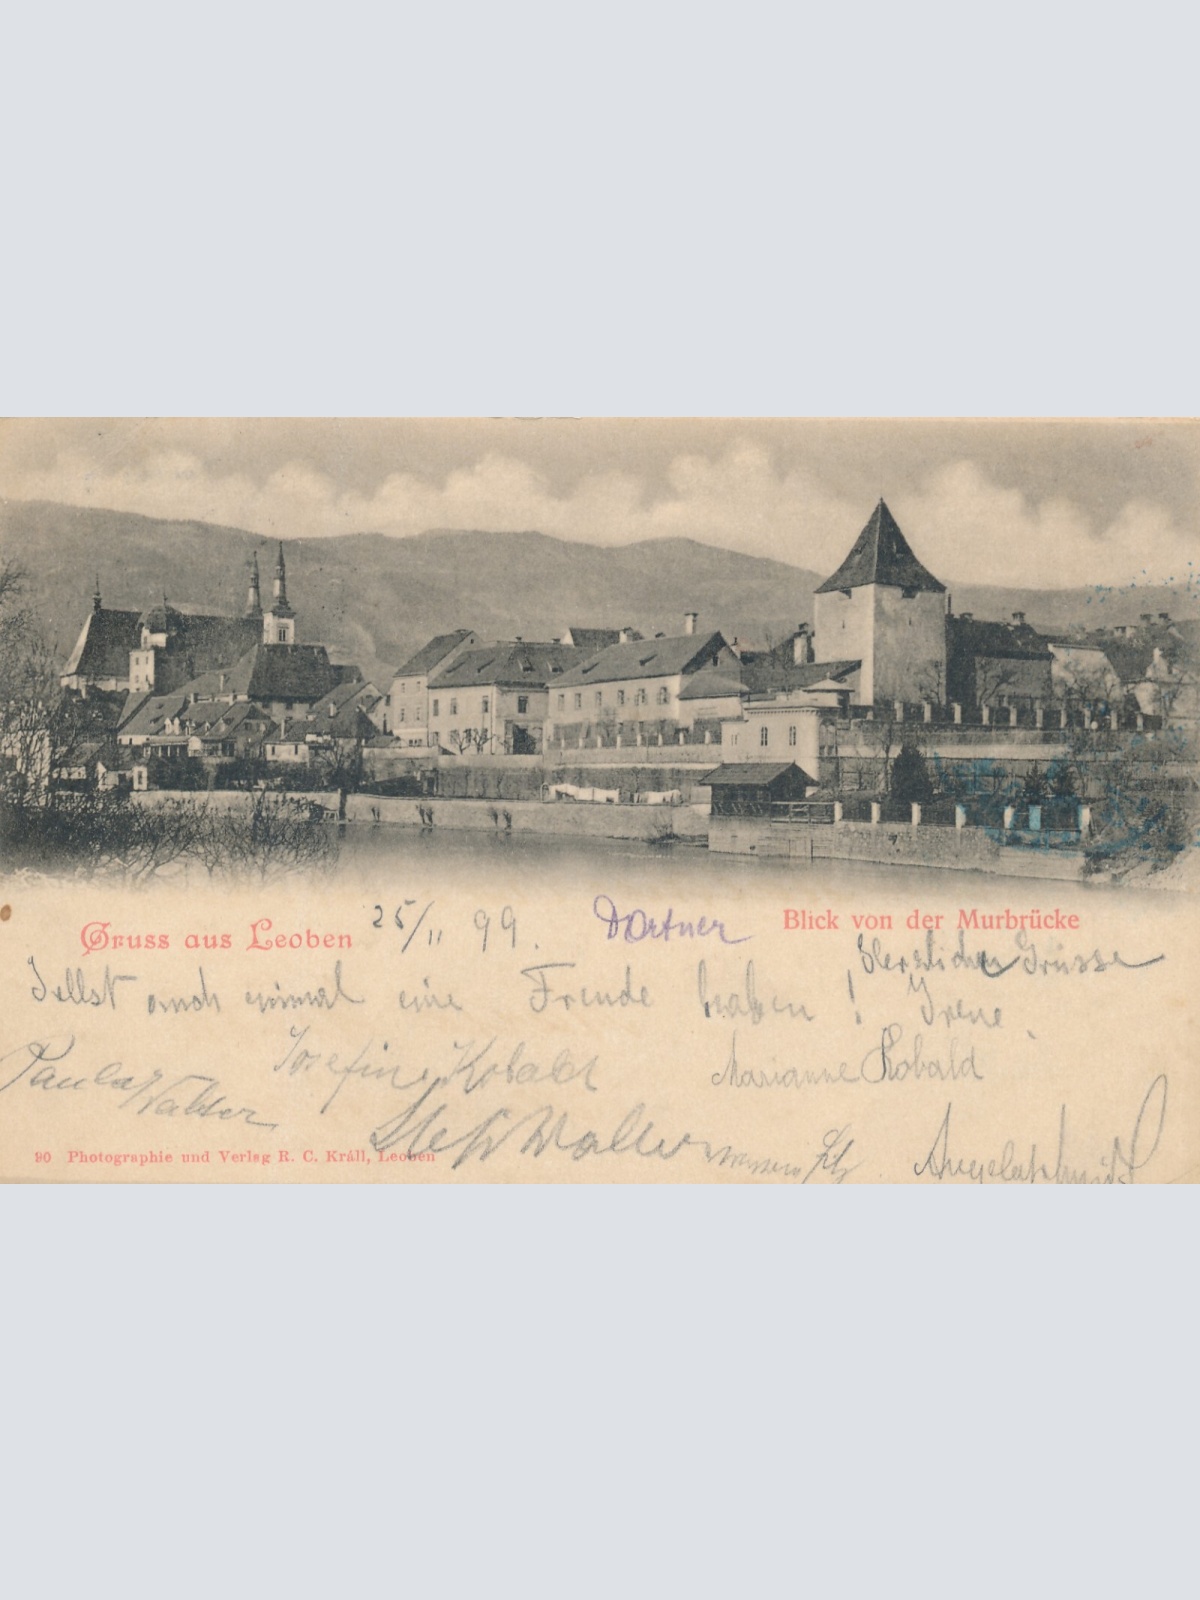 Gruss aus Leoben 25/11 99. Dortner Blick von der Murbrücke
Herzlichen Grüsse
Sollst auch einmal eine Freude haben! Irene.
Josefine Kobald Marianne Kobald
Paula Walter
Stefi Walter Angela Schmidt
90 Photographie und Verlag R. C. Králl, Leoben